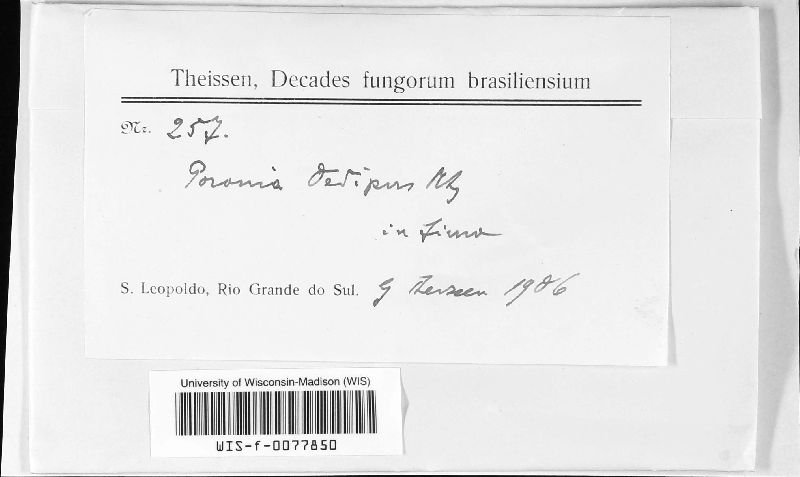 Theissen, Decades fungorum brasiliensium
Nr. 257.
Poronia Oedipus Mtg
in fimo
S. Leopoldo, Rio Grande do Sul. G Theissen 1906
University of Wisconsin-Madison (WIS)
WIS-f-0077850